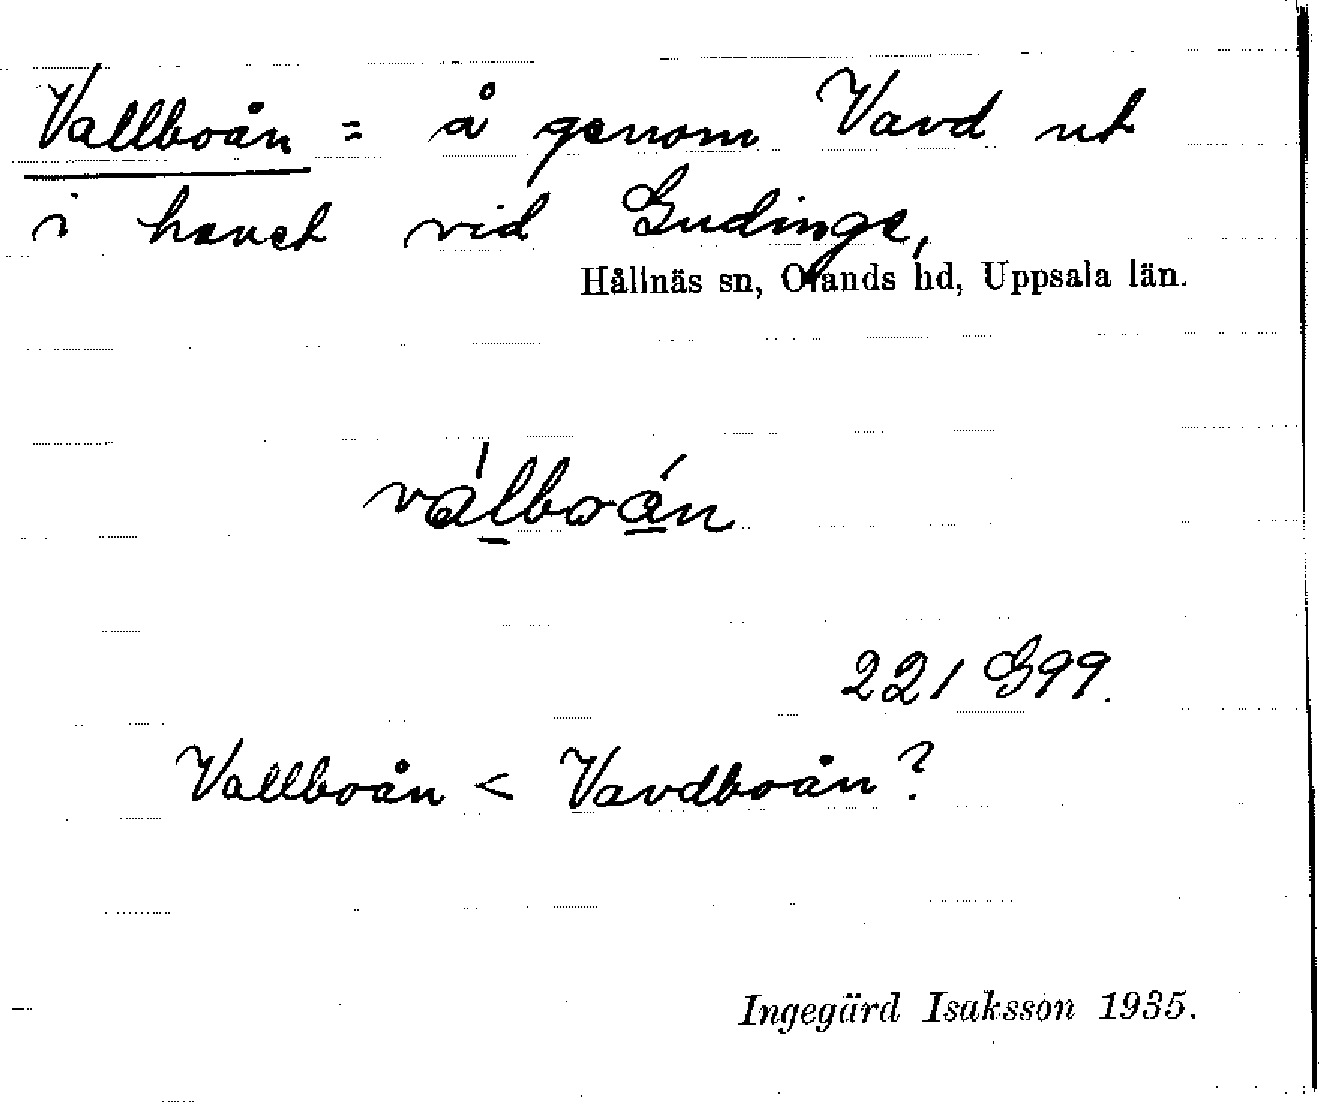 Vallboån = å genom Vavd ut
i havet vid Gudinge,
Hållnäs sn, Olands hd, Uppsala län.
válboán
221 G99.
Vallboån < Vavdboån?
Ingegärd Isaksson 1935.